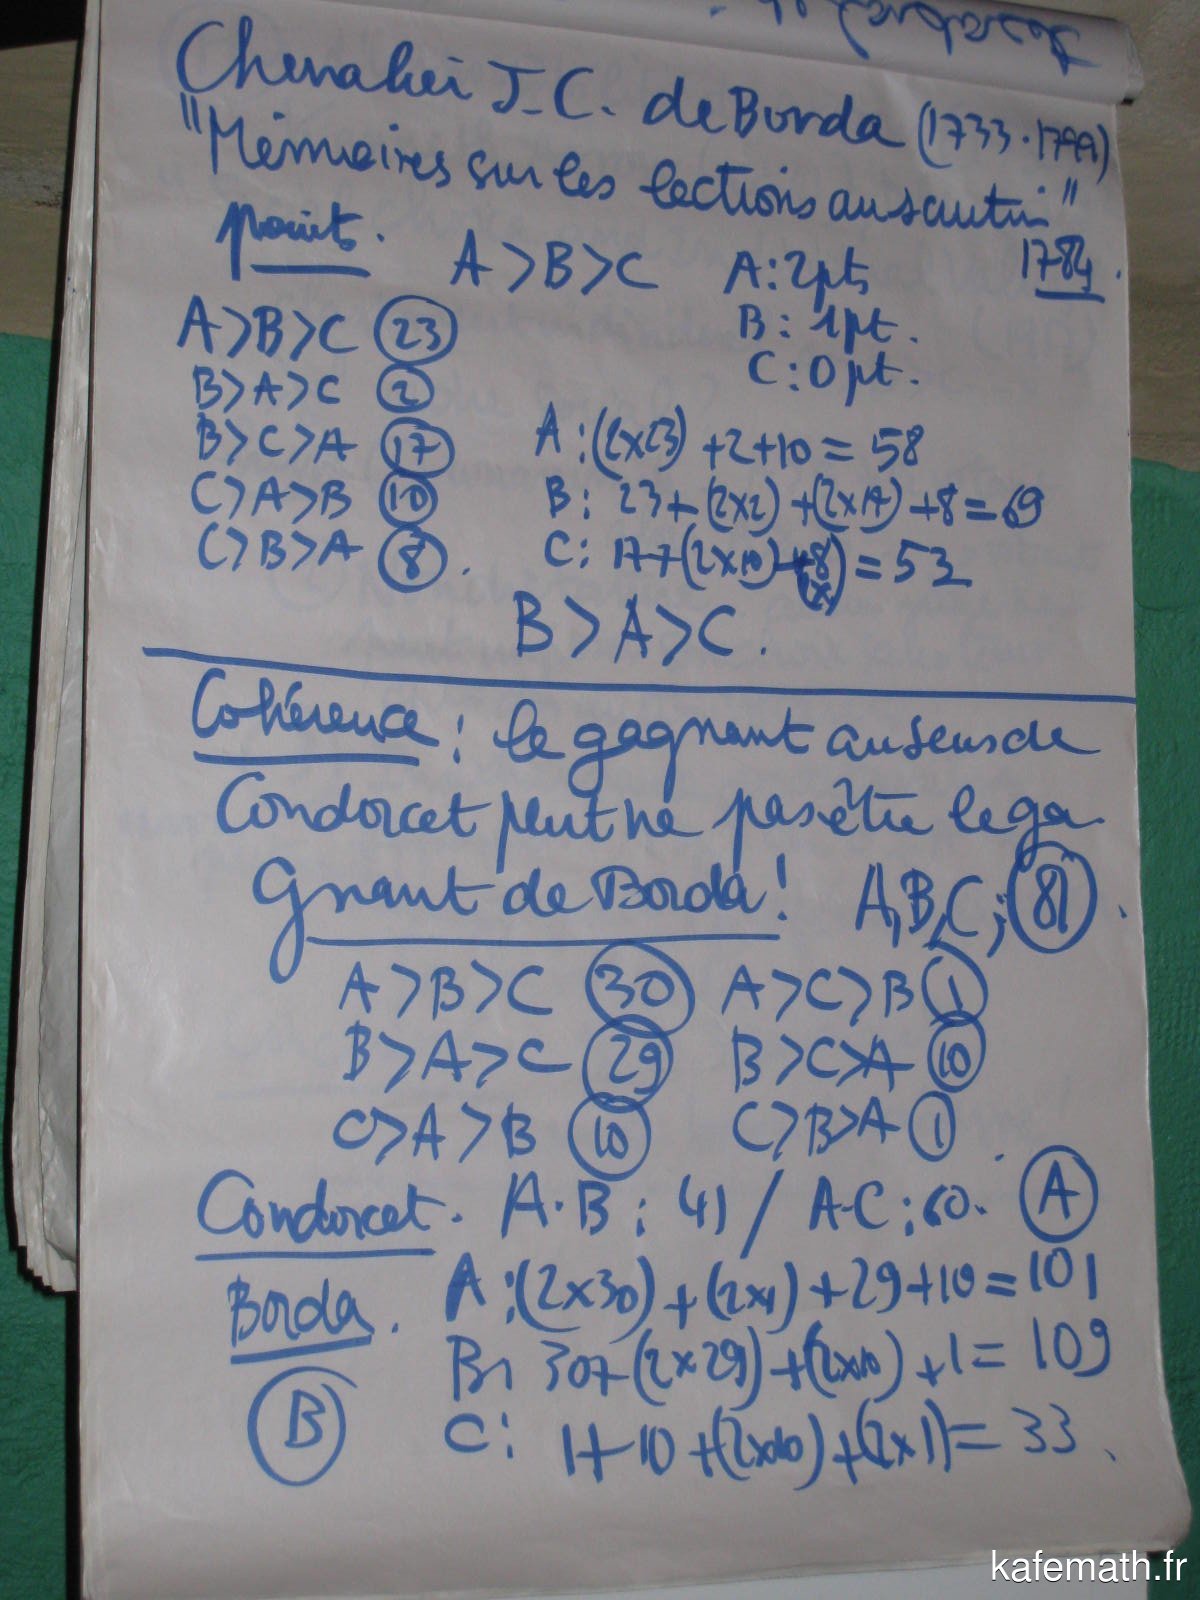 Chevalier J-C. de Borda (1733-1799)
"Mémoires sur les lections au scrutin"
1784.
points.
A>B>C A: 2pts
B: 1pt.
C: 0pt.
A>B>C 23
B>A>C 2
B>C>A 17
C>A>B 10
C>B>A 8.
A: (2x23) +2+10 = 58
B: 23+(2x2)+(2x17)+8=69
C: 17+(2x10)+(8x2)=53
B>A>C.
Cohérence: le gagnant au sens de
Condorcet peut ne pas être le ga-
gnant de Borda! A,B,C; 81.
A>B>C 30 A>C>B 1
B>A>C 29 B>C>A 10
C>A>B 10 C>B>A 1.
Condorcet. A-B: 41 / A-C: 60. A
Borda. A: (2x30)+(2x1)+29+10=101
B: 30+(2x29)+(2x10)+1=109
B
C: 1+10+(2x10)+(2x1)=33.
kafemath.fr